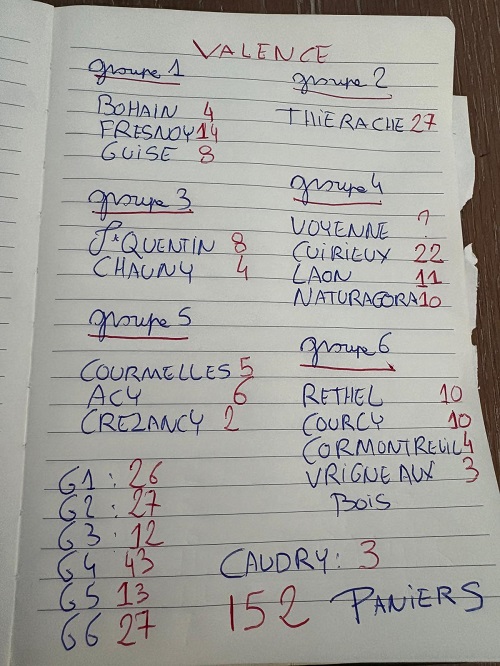 VALENCE
groupe 1
BOHAIN 4
FRESNOY 14
GUISE 8
groupe 2
THIERACHE 27
groupe 3
St QUENTIN 8
CHAUNY 4
groupe 4
VOYENNE ?
CUIRIEUX 22
LAON 11
NATURAGORA 10
groupe 5
COURMELLES 5
ACY 6
CREZANCY 2
groupe 6
RETHEL 10
COURCY 10
CORMONTREUIL 4
VRIGNEAUX 3
BOIS
G1 : 26
G2 : 27
G3 : 12
G4 43
G5 13
G6 27
CAUDRY : 3
152 PANIERS